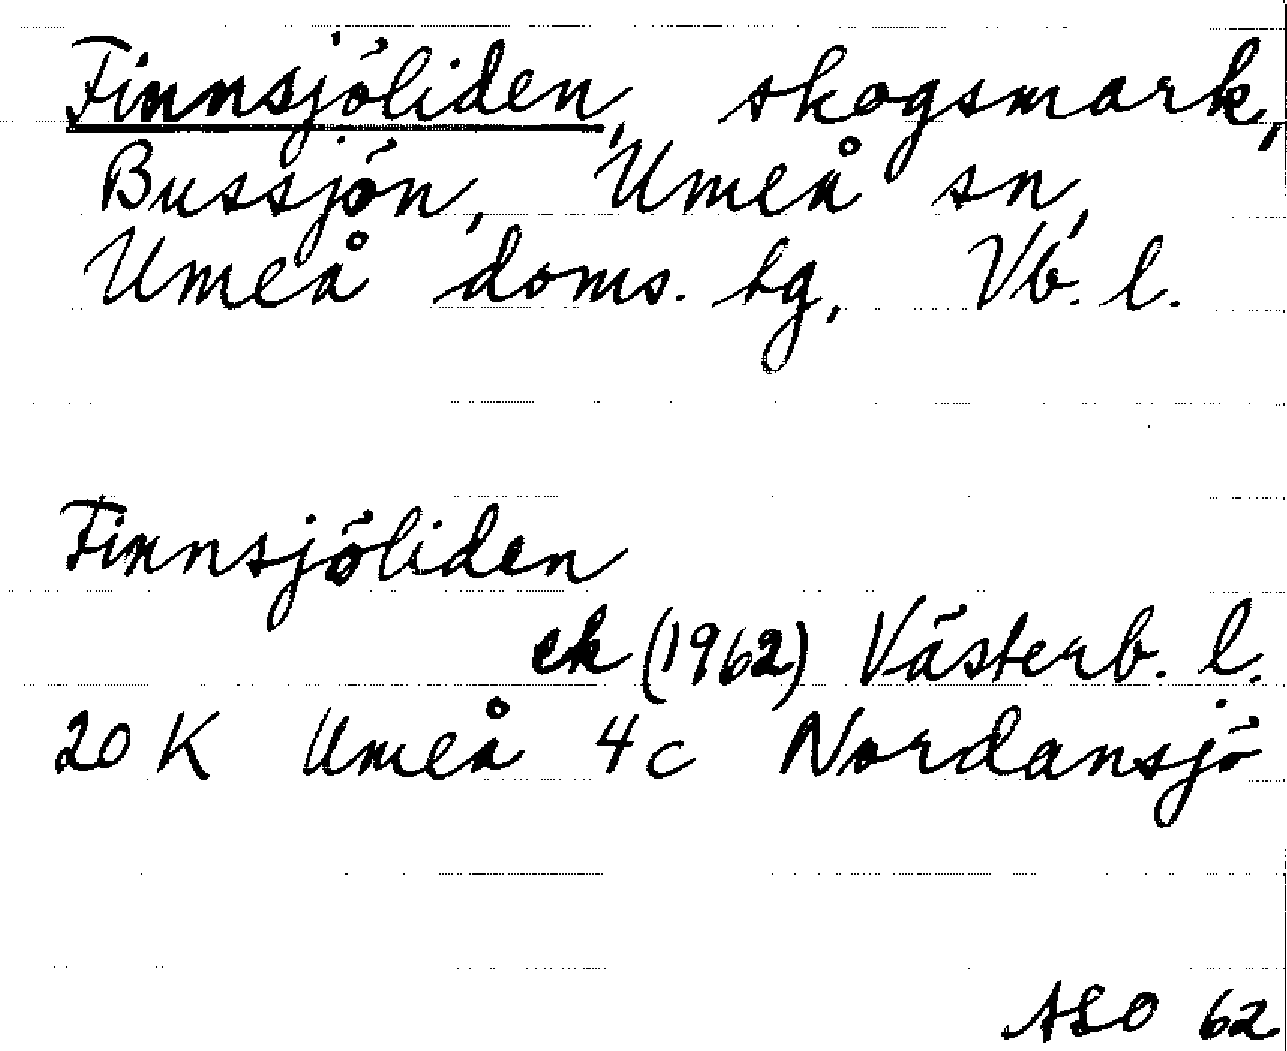 Finnsjöliden, skogsmark,
Bussjön, Umeå sn,
Umeå doms. tg, Vb. l.
Finnsjöliden
ek (1962) Västerb. l.
20 K Umeå 4c Nordansjö
ASO 62